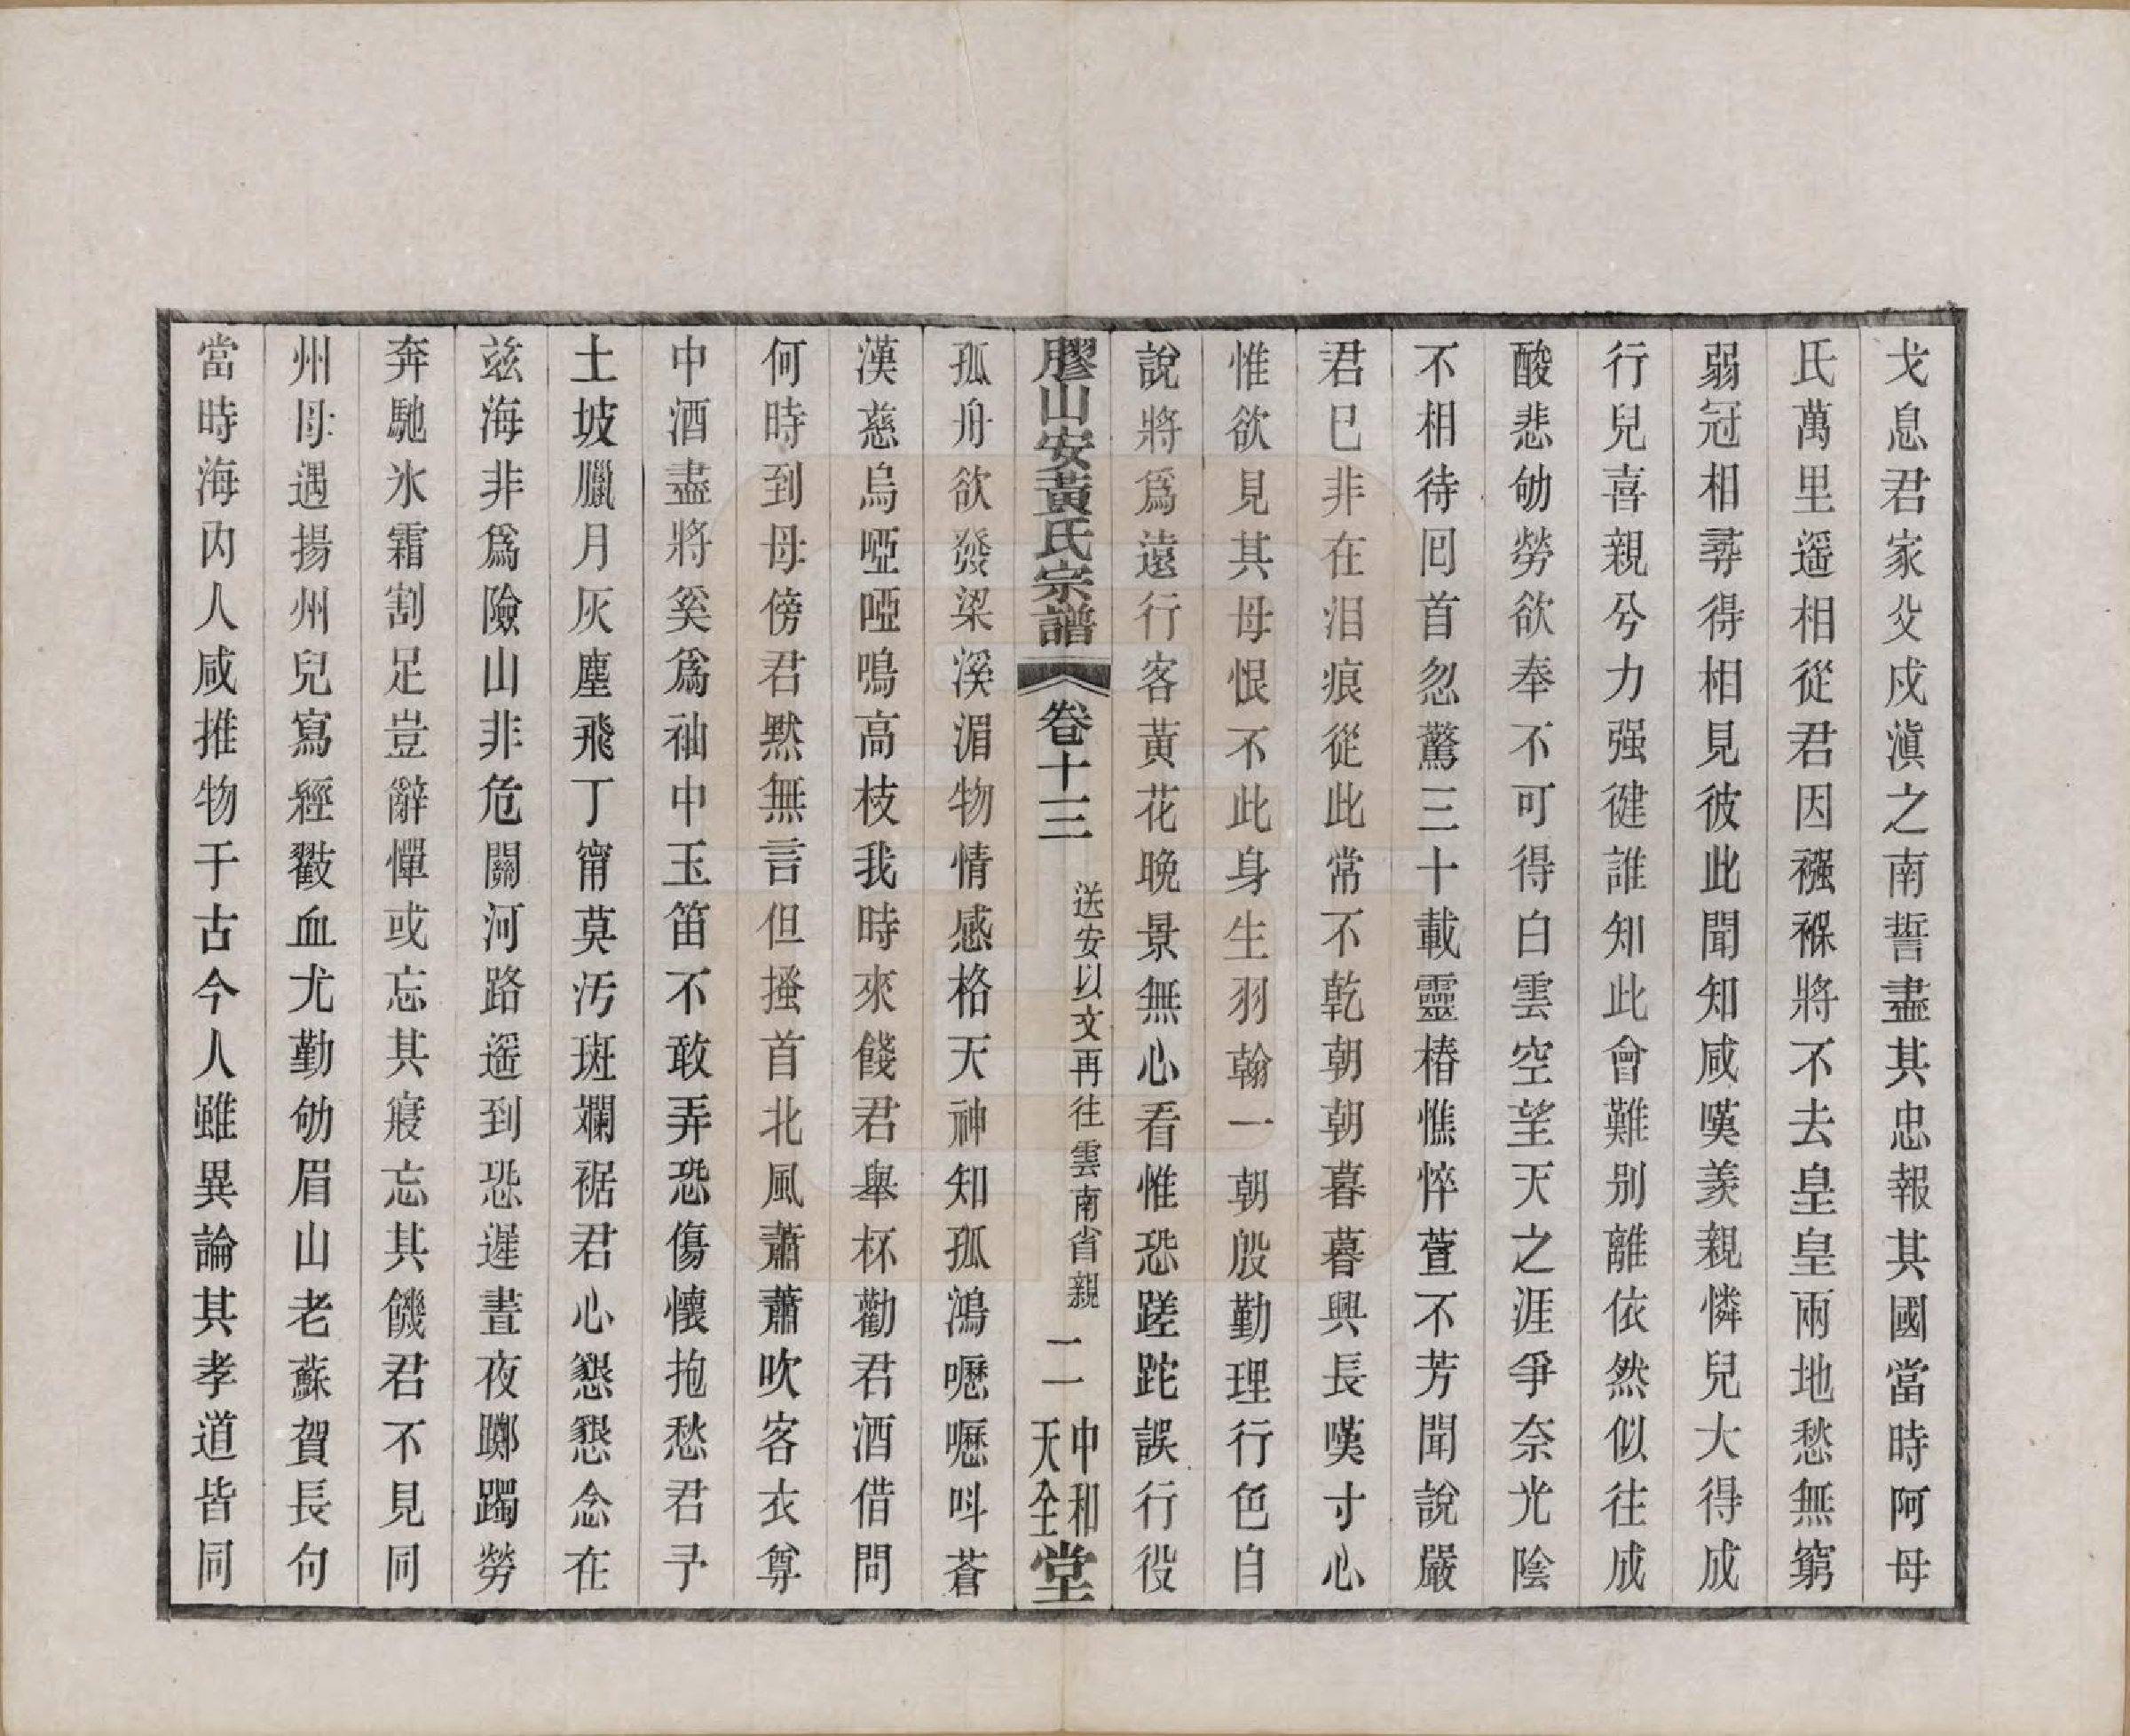 戈息君家父戍滇之南誓盡其忠報其國當時阿母
氏萬里遥相從君因襁褓將不去皇皇兩地愁無窮
弱冠相尋得相見彼此聞知咸嘆羨親憐兒大得成
行兒喜親兮力强健誰知此會難别離依然似往成
酸悲劬勞欲奉不可得白雲空望天之涯爭奈光陰
不相待囘首忽驚三十載靈椿憔悴萱不芳聞說嚴
君已非在泪痕從此常不乾朝朝暮暮興長嘆寸心
惟欲見其母恨不此身生羽翰一朝殷勤理行色自
說將爲遠行客黃花晚景無心看惟恐蹉跎誤行役
膠山安黃氏宗譜 卷十三 送安以文再往雲南省親 二 中和天全堂
孤舟欲發梁溪湄物情感格天神知孤鴻嚦嚦呌蒼
漢慈烏啞啞鳴高枝我時來餞君舉杯勸君酒借問
何時到母傍君默無言但搔首北風蕭蕭吹客衣尊
中酒盡將奚爲袖中玉笛不敢弄恐傷懷抱愁君子
土坡臘月灰塵飛丁甯莫汚斑斕裾君心懇懇念在
兹海非爲險山非危關河路遥到恐遲晝夜躑躅勞
奔馳氷霜割足豈辭憚或忘其寢忘其饑君不見同
州母遇揚州兒寫經戳血尤勤劬眉山老蘇賀長句
當時海内人咸推物于古今人雖異論其孝道皆同